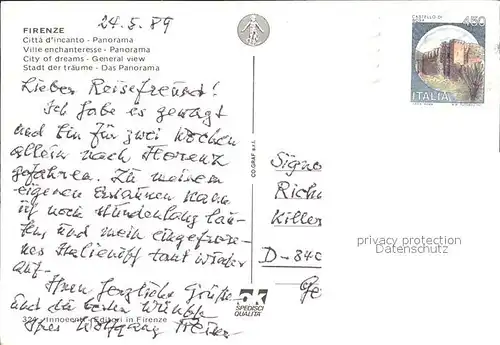 24.5.89
FIRENZE
Città d'incanto - Panorama
Ville enchanteresse - Panorama
City of dreams - General view
Stadt der träume - Das Panorama
CASTELLO DI
450
ITALIA
Lieber Reisefreund!
Ich habe es gewagt
und bin für zwei Wochen
allein nach Florenz
gefahren. Zu meinem
eigenen Erstaunen kann
ich noch stundenlang lau-
fen, und mein eingefrore-
nes Italienisch taut wieder
auf.
Ihnen herzliche Grüße
und die besten Wünsche
Ihres Wolfgang
CO-GRAF s.r.l.
Signo
Rich
Killer
D-840
Ge
privacy protection
Datenschutz
OK
SPEDISCI
QUALITÀ
Innocenti - Editori in Firenze